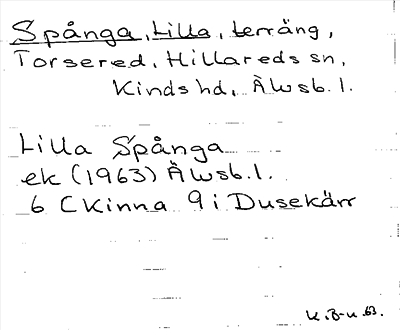 Spånga, Lilla, terräng,
Torsered, Hillareds sn,
Kinds hd, Älvsb. l.
Lilla Spånga
ek (1963) Älvsb. l.
6 C Kinna 9 i Dusekärr
K.B-n 63.